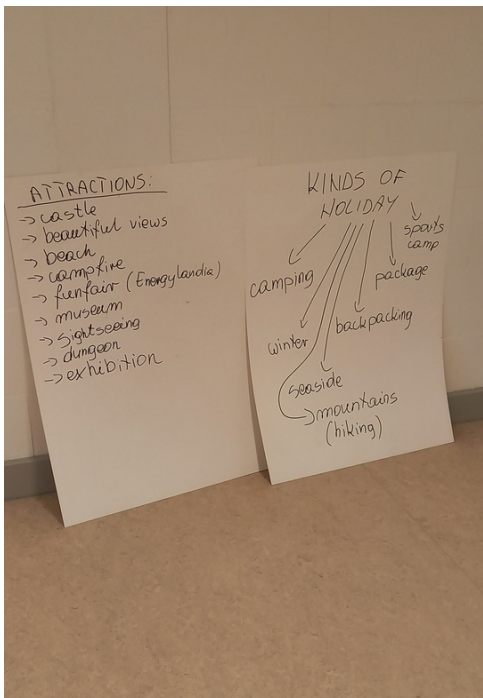 ATTRACTIONS:
-> castle
-> beautiful views
-> beach
-> campfire
-> funfair (Energylandia)
-> museum
-> sightseeing
-> dungeon
-> exhibition
KINDS OF
HOLIDAY
sports
camp
package
camping
backpacking
winter
seaside
mountains
(hiking)